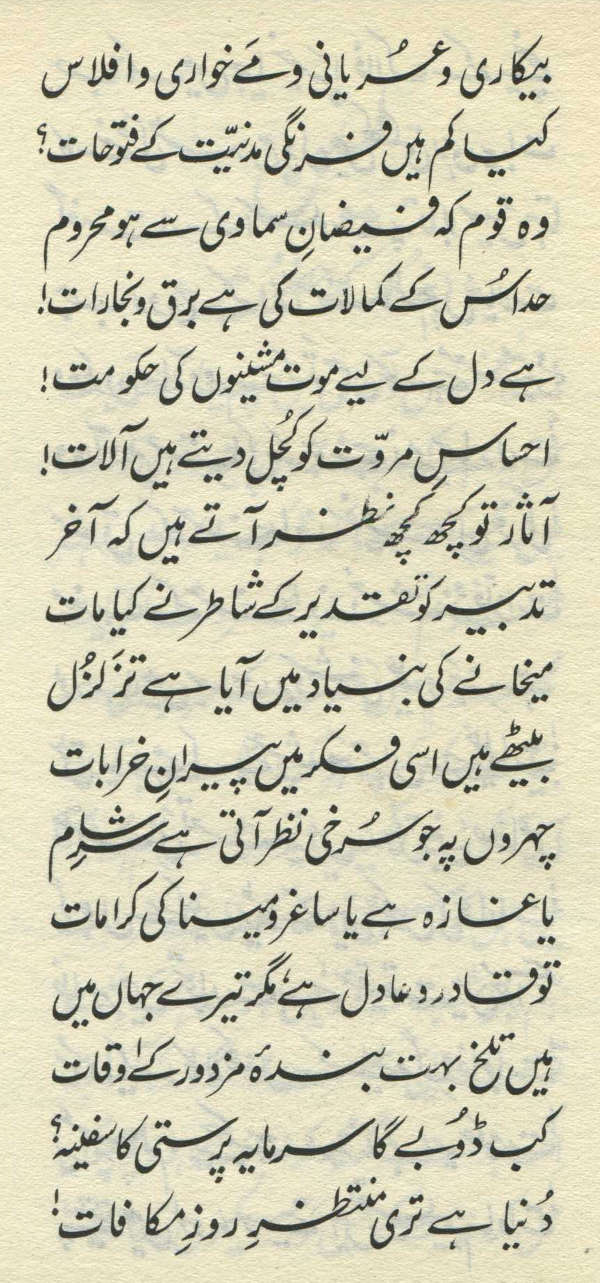 بیکاری و عُریانی و مَے خواری و افلاس
کیا کم ہیں فرنگی مدنیّت کے فتوحات؟
وہ قوم کہ فیضانِ سماوی سے ہو محروم
حد اُس کے کمالات کی ہے برق و بخارات!
ہے دل کے لیے موت مشینوں کی حکومت!
احساسِ مروّت کو کُچل دیتے ہیں آلات!
آثار تو کچھ کچھ نظر آتے ہیں کہ آخر
تدبیر کو تقدیر کے شاطر نے کیا مات
میخانے کی بنیاد میں آیا ہے تزَلزُل
بیٹھے ہیں اسی فکر میں پیرانِ خرابات
چہروں پہ جو سُرخی نظر آتی ہے سرِ شام
یا غازہ ہے یا ساغر و مینا کی کرامات
تو قادر و عادل ہے، مگر تیرے جہاں میں
ہیں تلخ بہت بندۂ مزدور کے اوقات
کب ڈُوبے گا سرمایہ پرستی کا سفینہ؟
دُنیا ہے تری منتظرِ روزِ مکافات!